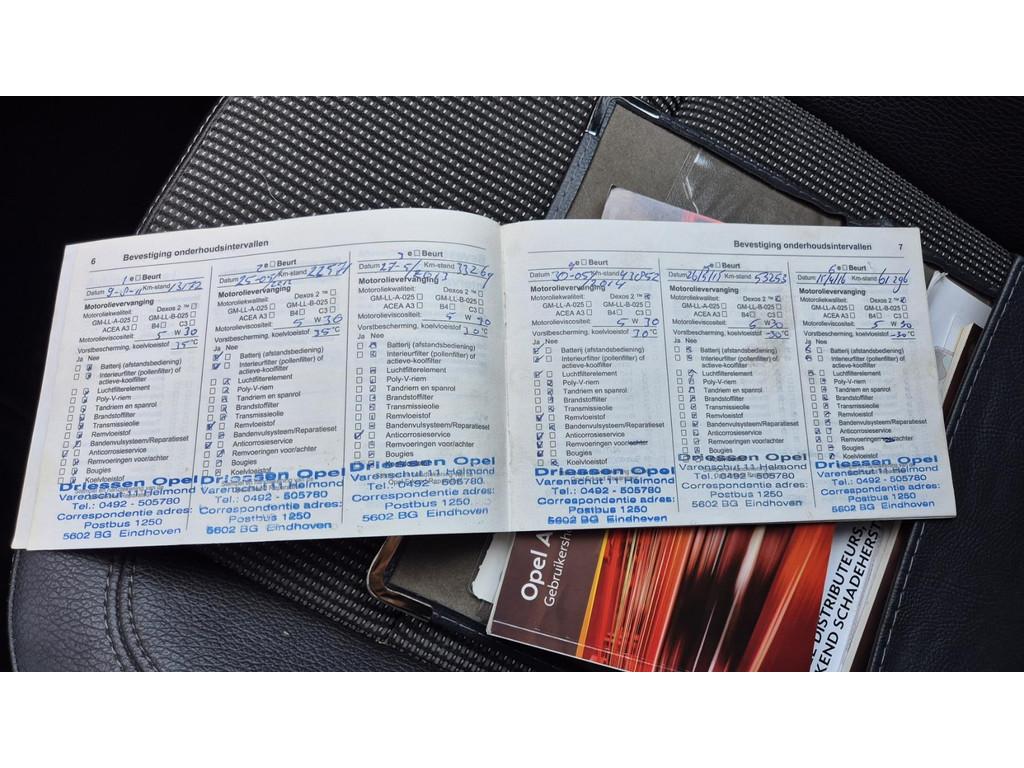 6 Bevestiging onderhoudsintervallen
1 e Beurt
Datum 9-8-11 Km-stand 13172
Motorolievervanging
Motoroliekwaliteit: Dexos 2 ™
GM-LL-A-025 GM-LL-B-025
ACEA A3 B4 C3
Motorolieviscositeit: 5 W 30
Vorstbescherming, koelvloeistof 35 °C
Ja Nee
Batterij (afstandsbediening)
Interieurfilter (pollenfilter) of
actieve-koolfilter
Luchtfilterelement
Poly-V-riem
Tandriem en spanrol
Brandstoffilter
Transmissieolie
Remvloeistof
Bandenvulsysteem/Reparatieset
Anticorrosieservice
Remvoeringen voor/achter
Bougies
Koelvloeistof
Driessen Opel
Varenschut 11 Helmond
Tel.: 0492 - 505780
Correspondentie adres:
Postbus 1250
5602 BG Eindhoven
2 e Beurt
Datum Km-stand 22571
Motorolievervanging
Motoroliekwaliteit: Dexos 2 ™
GM-LL-A-025 GM-LL-B-025
ACEA A3 B4 C3
Motorolieviscositeit: 5 W 30
Vorstbescherming, koelvloeistof 35 °C
Ja Nee
Batterij (afstandsbediening)
Interieurfilter (pollenfilter) of
actieve-koolfilter
Luchtfilterelement
Poly-V-riem
Tandriem en spanrol
Brandstoffilter
Transmissieolie
Remvloeistof
Bandenvulsysteem/Reparatieset
Anticorrosieservice
Remvoeringen voor/achter
Bougies
Koelvloeistof
Driessen Opel
Varenschut 11 Helmond
Tel.: 0492 - 505780
Correspondentie adres:
Postbus 1250
5602 BG Eindhoven
3 e Beurt
Datum Km-stand 33269
Motorolievervanging
Motoroliekwaliteit: Dexos 2 ™
GM-LL-A-025 GM-LL-B-025
ACEA A3 B4 C3
Motorolieviscositeit: 5 W 30
Vorstbescherming, koelvloeistof 30 °C
Ja Nee
Batterij (afstandsbediening)
Interieurfilter (pollenfilter) of
actieve-koolfilter
Luchtfilterelement
Poly-V-riem
Tandriem en spanrol
Brandstoffilter
Transmissieolie
Remvloeistof
Bandenvulsysteem/Reparatieset
Anticorrosieservice
Remvoeringen voor/achter
Bougies
Koelvloeistof
Driessen Opel
Varenschut 11 Helmond
Tel.: 0492 - 505780
Correspondentie adres:
Postbus 1250
5602 BG Eindhoven
Bevestiging onderhoudsintervallen 7
e Beurt
Datum 30-05 2014 Km-stand 43852
Motorolievervanging
Motoroliekwaliteit: Dexos 2 ™
GM-LL-A-025 GM-LL-B-025
ACEA A3 B4 C3
Motorolieviscositeit: 5 W 30
Vorstbescherming, koelvloeistof °C
Ja Nee
Batterij (afstandsbediening)
Interieurfilter (pollenfilter) of
actieve-koolfilter
Luchtfilterelement
Poly-V-riem
Tandriem en spanrol
Brandstoffilter
Transmissieolie
Remvloeistof
Bandenvulsysteem/Reparatieset
Anticorrosieservice
Remvoeringen voor/achter
Bougies
Koelvloeistof
Driessen Opel
Varenschut 11 Helmond
Tel.: 0492 - 505780
Correspondentie adres:
Postbus 1250
5602 BG Eindhoven
e Beurt
Datum Km-stand 53253
Motorolievervanging
Motoroliekwaliteit: Dexos 2 ™
GM-LL-A-025 GM-LL-B-025
ACEA A3 B4 C3
Motorolieviscositeit: 5 W 30
Vorstbescherming, koelvloeistof -30 °C
Ja Nee
Batterij (afstandsbediening)
Interieurfilter (pollenfilter) of
actieve-koolfilter
Luchtfilterelement
Poly-V-riem
Tandriem en spanrol
Brandstoffilter
Transmissieolie
Remvloeistof
Bandenvulsysteem/Reparatieset
Anticorrosieservice
Remvoeringen voor/achter
Bougies
Koelvloeistof
Driessen Opel
Varenschut 11 Helmond
Tel.: 0492 - 505780
Correspondentie adres:
Postbus 1250
5602 BG Eindhoven
6 e Beurt
Datum 15/4/16 Km-stand 61296
Motorolievervanging
Motoroliekwaliteit: Dexos 2 ™
GM-LL-A-025 GM-LL-B-025
ACEA A3 B4 C3
Motorolieviscositeit: 5 W 30
Vorstbescherming, koelvloeistof -30 °C
Ja Nee
Batterij (afstandsbediening)
Interieurfilter (pollenfilter) of
actieve-koolfilter
Luchtfilterelement
Poly-V-riem
Tandriem en spanrol
Brandstoffilter
Transmissieolie
Remvloeistof
Bandenvulsysteem/Reparatieset
Anticorrosieservice
Remvoeringen voor/achter
Bougies
Koelvloeistof
Driessen Opel
Varenschut 11 Helmond
Tel.: 0492 - 505780
Correspondentie adres:
Postbus 1250
5602 BG Eindhoven
Opel A
Gebruikersh
DISTRIBUTEURS,
KEND SCHADEHERST